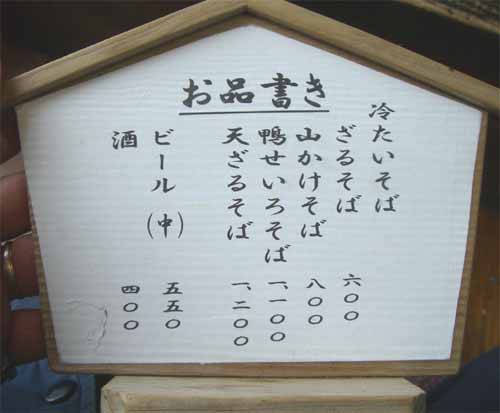 お品書き
冷たいそば
ざるそば 六〇〇
山かけそば 八〇〇
鴨せいろそば 一、一〇〇
天ざるそば 一、二〇〇
ビール(中) 五五〇
酒 四〇〇